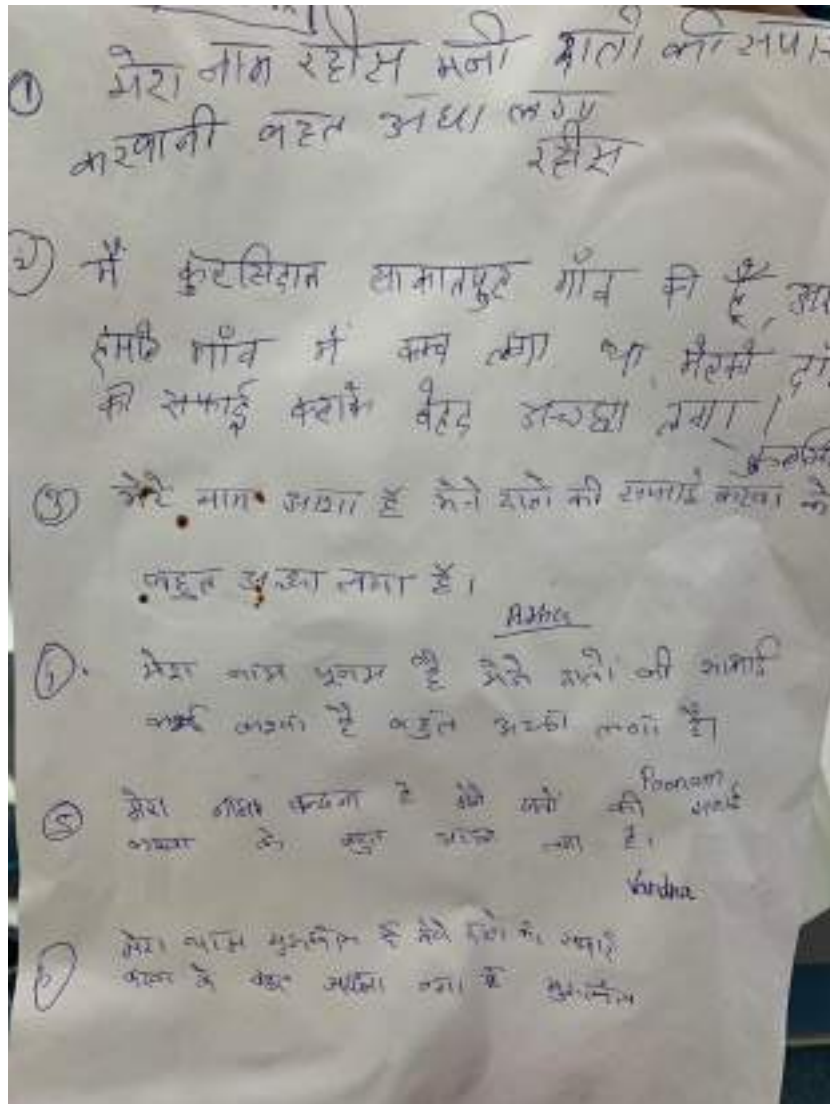 ① मेरा नाम रहीस मनी दातो की सपा
करवानी बहत अछा लगा
रहीस
② मैं कुरसिदान गाँव की हूँ,
हमारे गाँव में कम्प लगा था,
की सफाई कराके बेहद अच्छा लगा।
③ मेरे नाम आशा है मेने दातो की सफाई करवा के
बहुत अच्छा लगा है।
Asha
मेरा नाम पूनम है मेने दातों की
करवा है बहुत अच्छा लगा है।
Poonam
⑤ मेरा नाम वन्दना है मेने दातों की सफाई
करवा के बहुत अच्छा लगा है।
Vandna
मेरा नाम है मेने दातो की सफाई
करवा के बहुत अच्छा लगा है